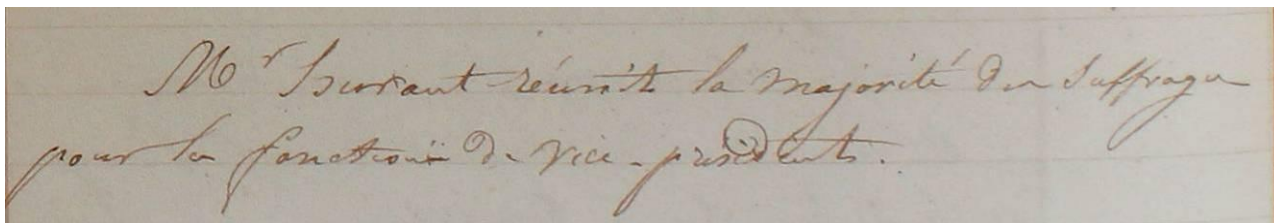 Mr réunit la majorité des suffrages
pour les fonctions de vice-président.